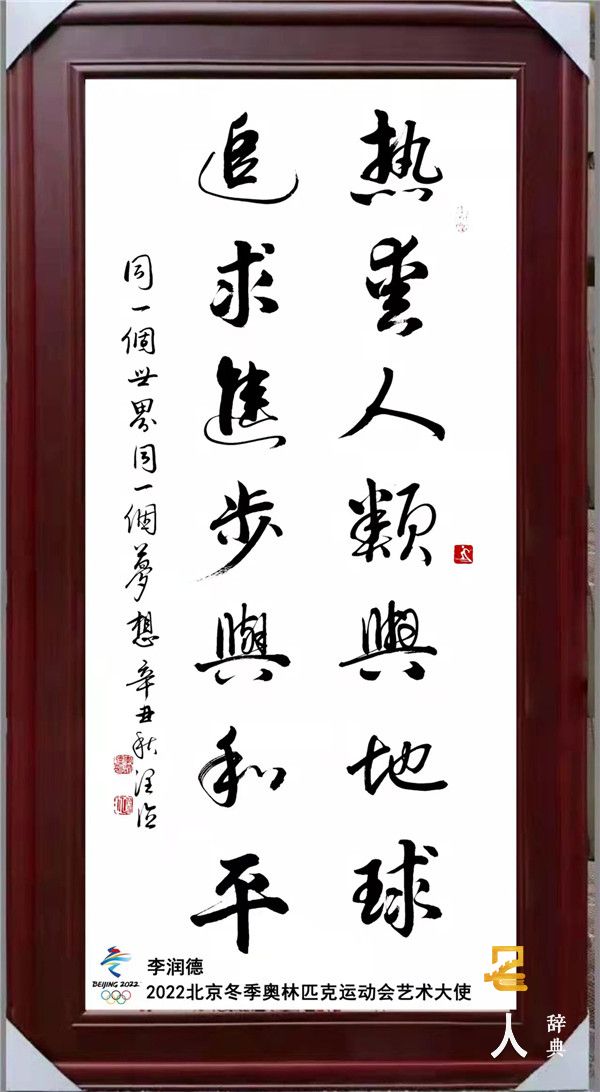 热爱人類與地球
追求進步與和平
同一個世界同一個夢想 辛丑秋 润德
BEIJING 2022
李润德
2022北京冬季奥林匹克运动会艺术大使
名人
辞典